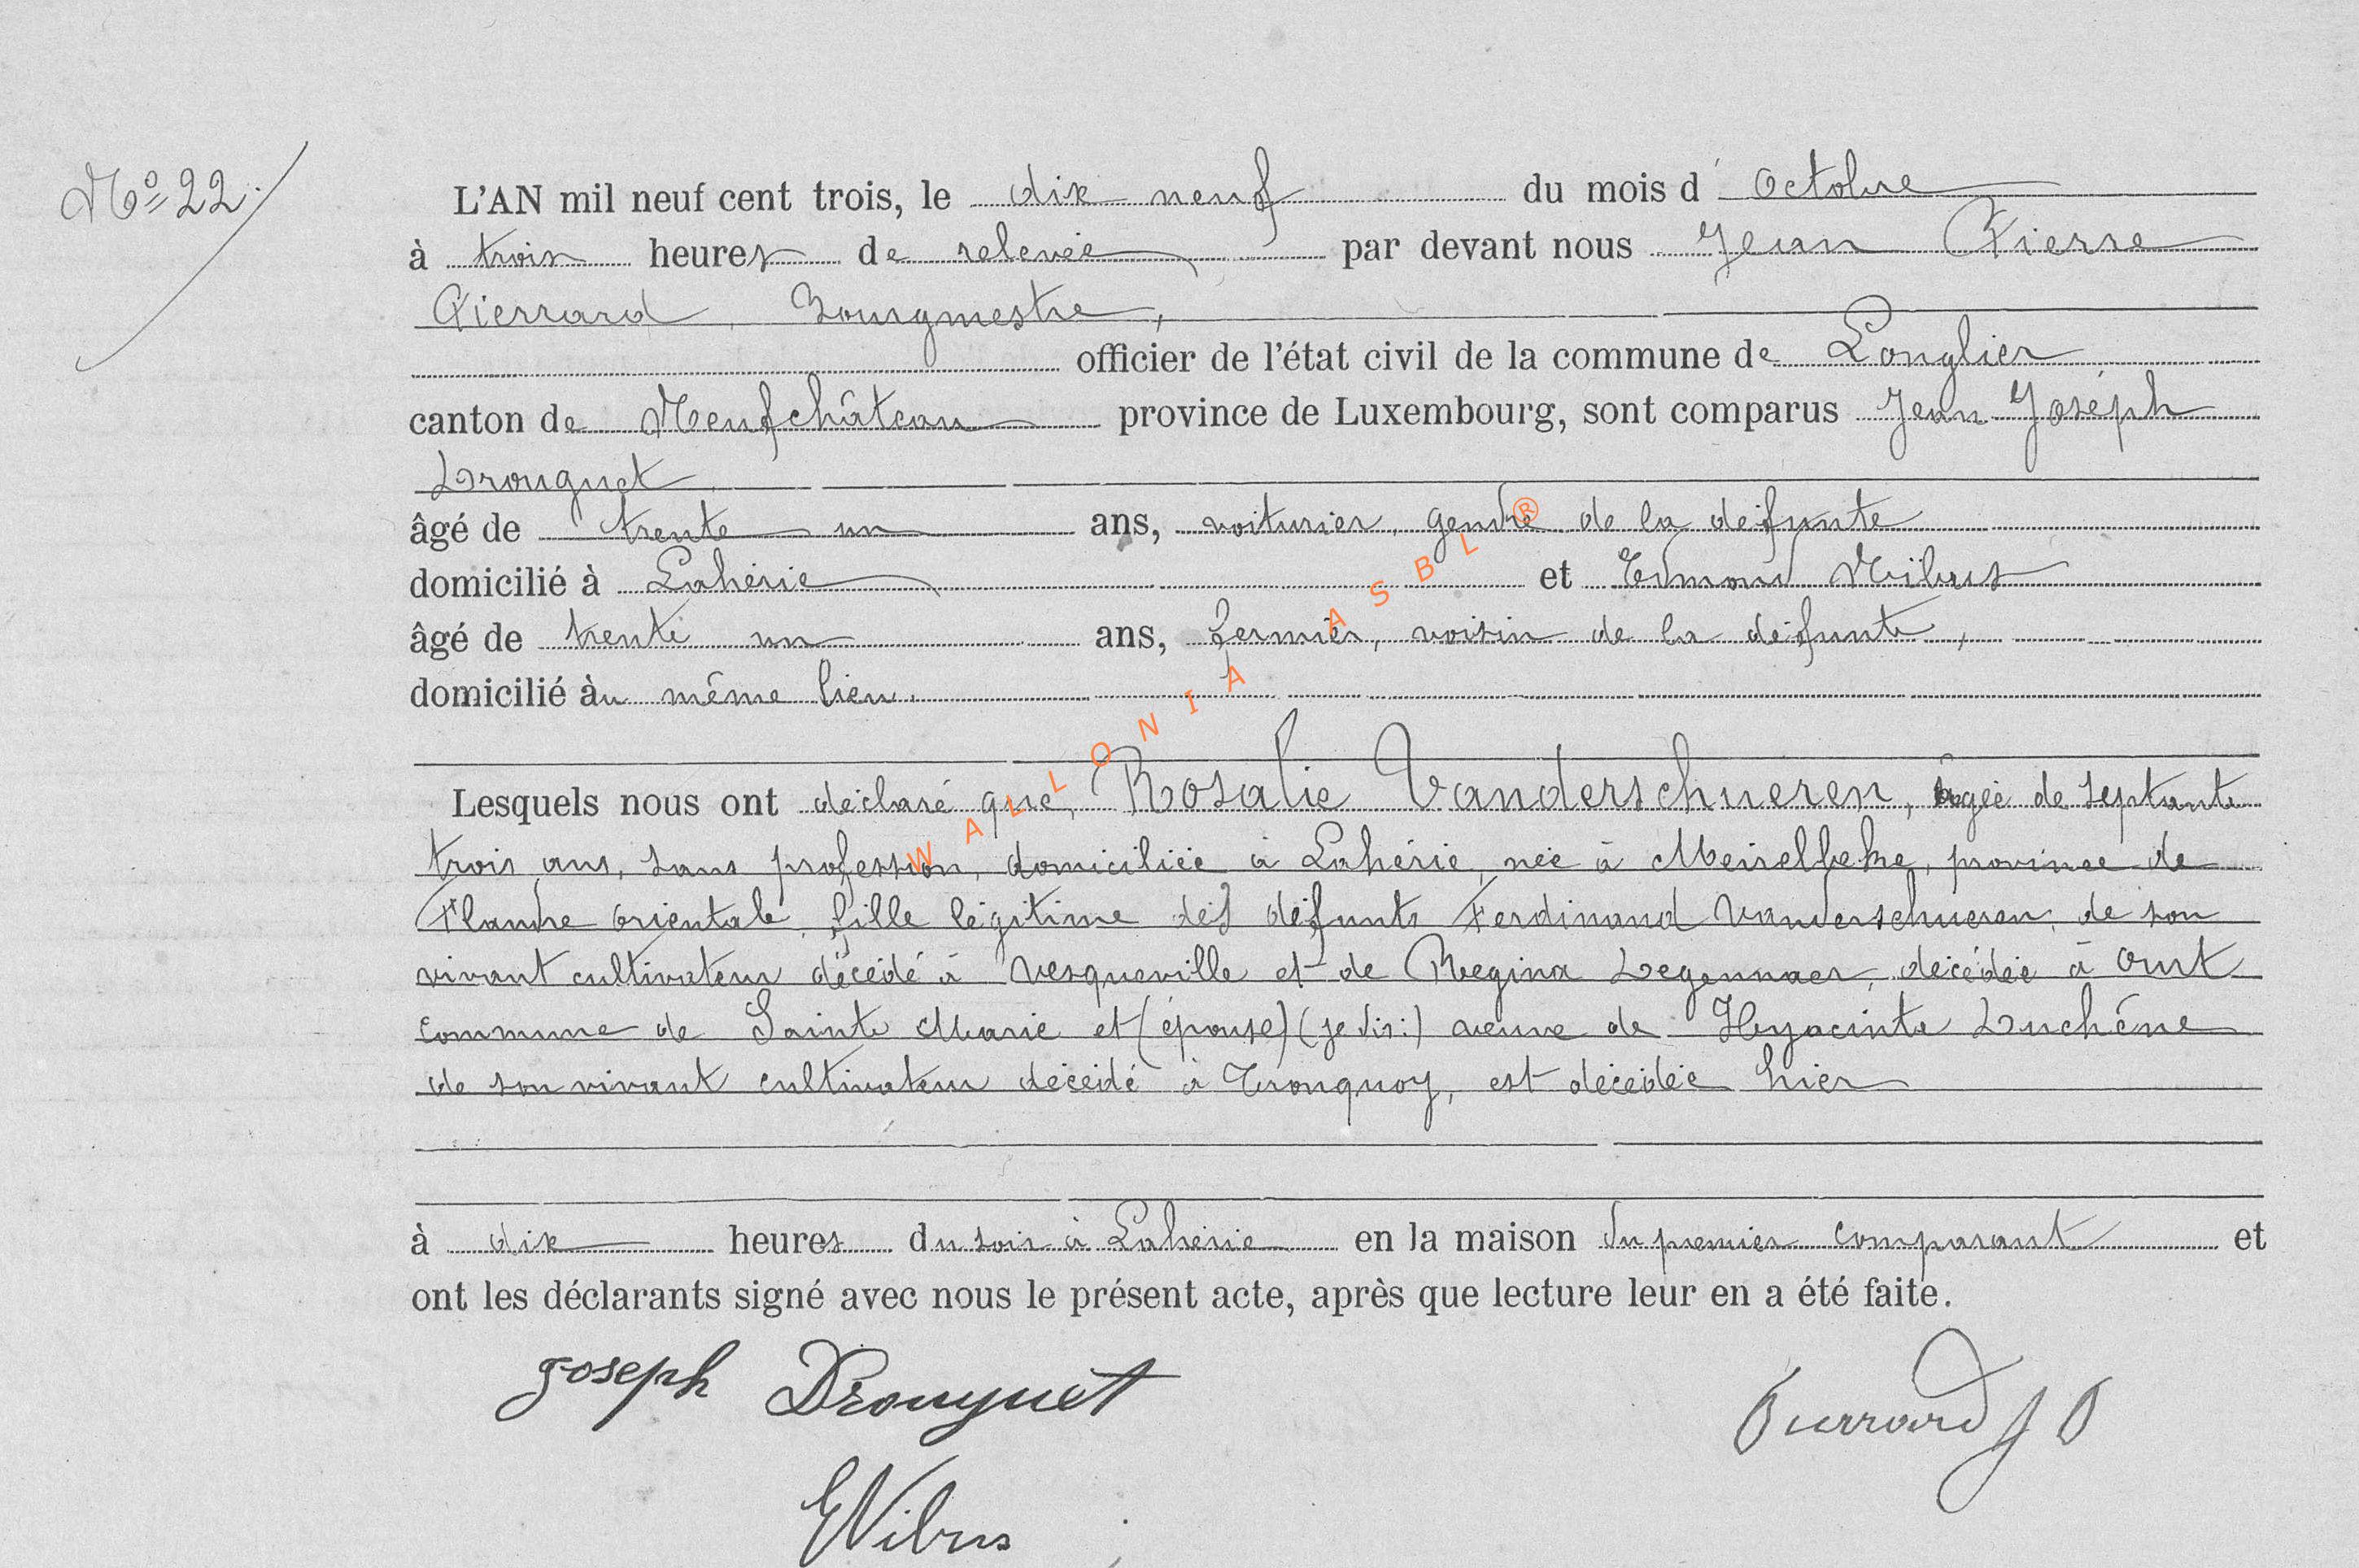 Nº 22.
L'AN mil neuf cent trois, le dix neuf du mois d' Octobre
à trois heures de relevée par devant nous Jean Pierre
Pierrard, Bourgmestre,
officier de l'état civil de la commune de Longlier
canton de Neufchâteau province de Luxembourg, sont comparus Jean Joseph
Drouguet
âgé de trente un ans, voiturier, gendre de la défunte
domicilié à Lahérie et Edmond Nibus
âgé de trente un ans, fermier, voisin de la défunte,
domicilié au même lieu.
Lesquels nous ont déclaré que, Rosalie Vanderschueren, âgée de septante
trois ans, sans profession, domiciliée à Lahérie, née à Meirelbeke, province de
Flandre orientale, fille légitime des défunts Ferdinand Vanderschueren, de son
vivant cultivateur décédé à Vesqueville et de Regina Degennaer, décédée à Ourt
commune de Sainte Marie et (épouse) (je dis:) veuve de Hyacinte Duchêne
de son vivant cultivateur décédé à Tronquoy, est décédée hier
à dix heures du soir à Lahérie en la maison du premier comparant et
ont les déclarants signé avec nous le présent acte, après que lecture leur en a été faite.
Joseph Drouguet
Pierrard J P
E Nibus
WALLONIA ASBL ®